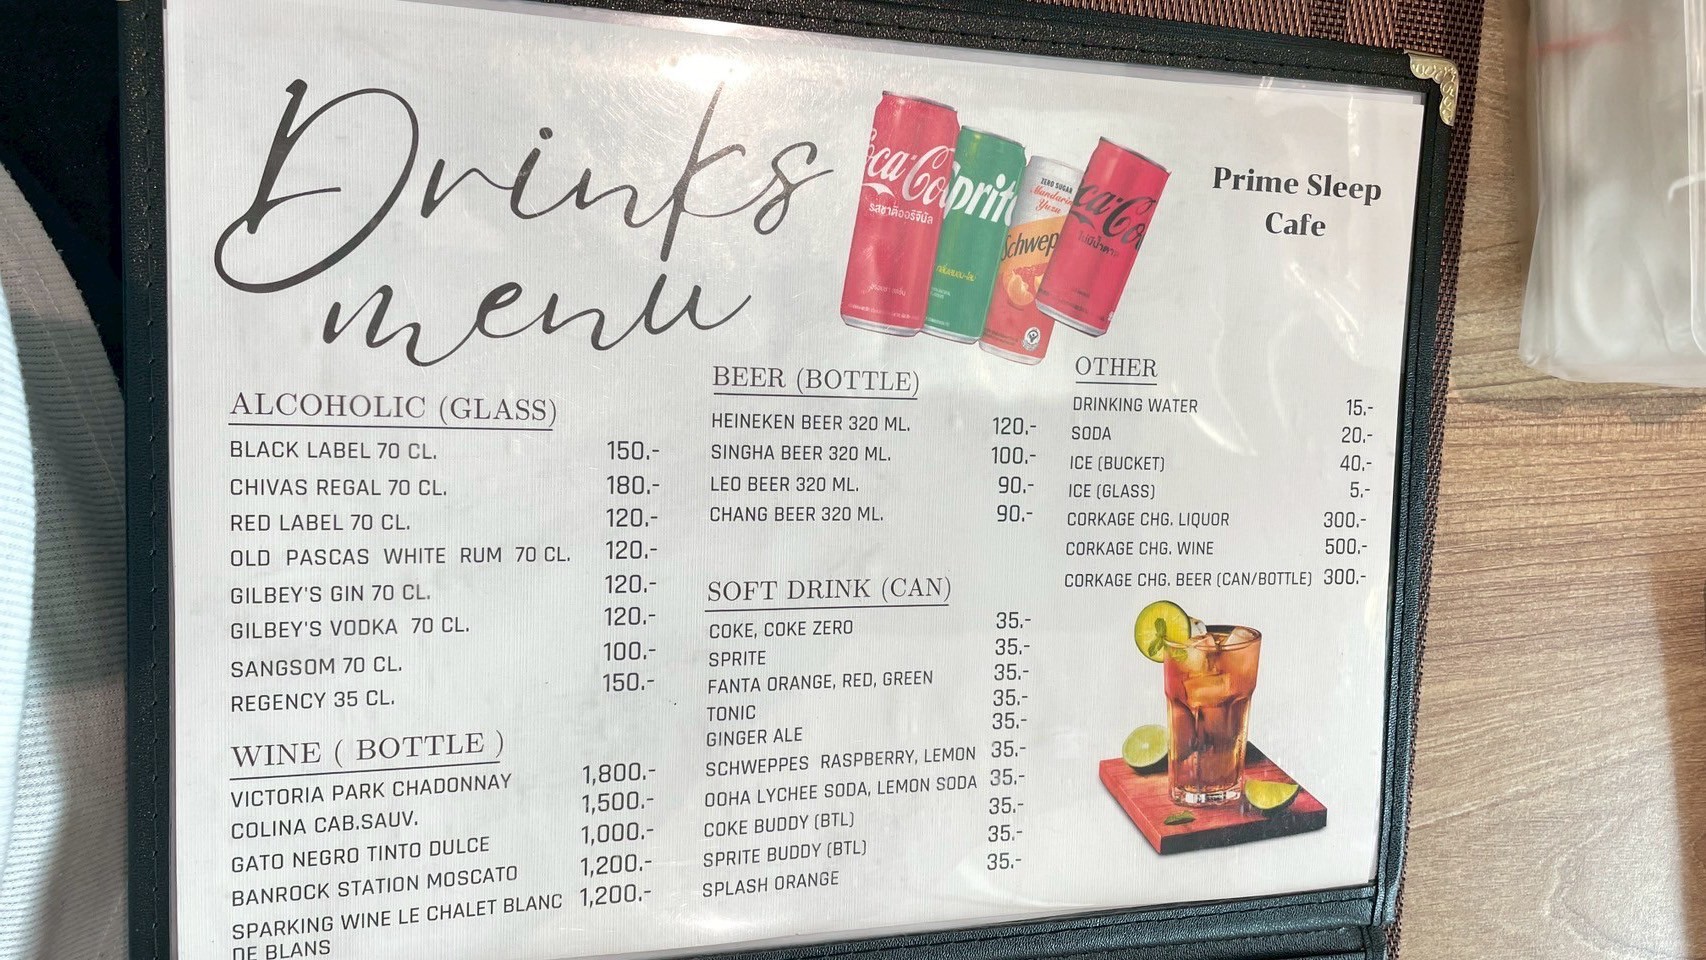 Drinks
menu
Prime Sleep
Cafe
Coca-Cola
รสชาติออริจินัล
Sprite
ZERO SUGAR
Mandarin
Yuzu
Schwep
Coca-Cola
ไม่มีน้ำตาล
ALCOHOLIC (GLASS)
BLACK LABEL 70 CL. 150.-
CHIVAS REGAL 70 CL. 180.-
RED LABEL 70 CL. 120.-
OLD PASCAS WHITE RUM 70 CL. 120.-
GILBEY'S GIN 70 CL. 120.-
GILBEY'S VODKA 70 CL. 120.-
SANGSOM 70 CL. 100.-
REGENCY 35 CL. 150.-
WINE ( BOTTLE )
VICTORIA PARK CHADONNAY 1,800.-
COLINA CAB.SAUV. 1,500.-
GATO NEGRO TINTO DULCE 1,000.-
BANROCK STATION MOSCATO 1,200.-
SPARKING WINE LE CHALET BLANC 1,200.-
DE BLANS
BEER (BOTTLE)
HEINEKEN BEER 320 ML. 120.-
SINGHA BEER 320 ML. 100.-
LEO BEER 320 ML. 90.-
CHANG BEER 320 ML. 90.-
SOFT DRINK (CAN)
COKE, COKE ZERO 35.-
SPRITE 35.-
FANTA ORANGE, RED, GREEN 35.-
TONIC 35.-
GINGER ALE 35.-
SCHWEPPES RASPBERRY, LEMON 35.-
OOHA LYCHEE SODA, LEMON SODA 35.-
COKE BUDDY (BTL) 35.-
SPRITE BUDDY (BTL) 35.-
SPLASH ORANGE 35.-
OTHER
DRINKING WATER 15.-
SODA 20.-
ICE (BUCKET) 40.-
ICE (GLASS) 5.-
CORKAGE CHG. LIQUOR 300.-
CORKAGE CHG. WINE 500.-
CORKAGE CHG. BEER (CAN/BOTTLE) 300.-